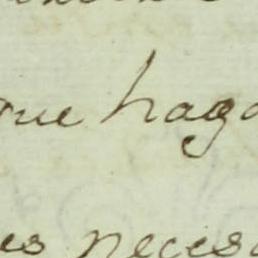 que haga
es neces